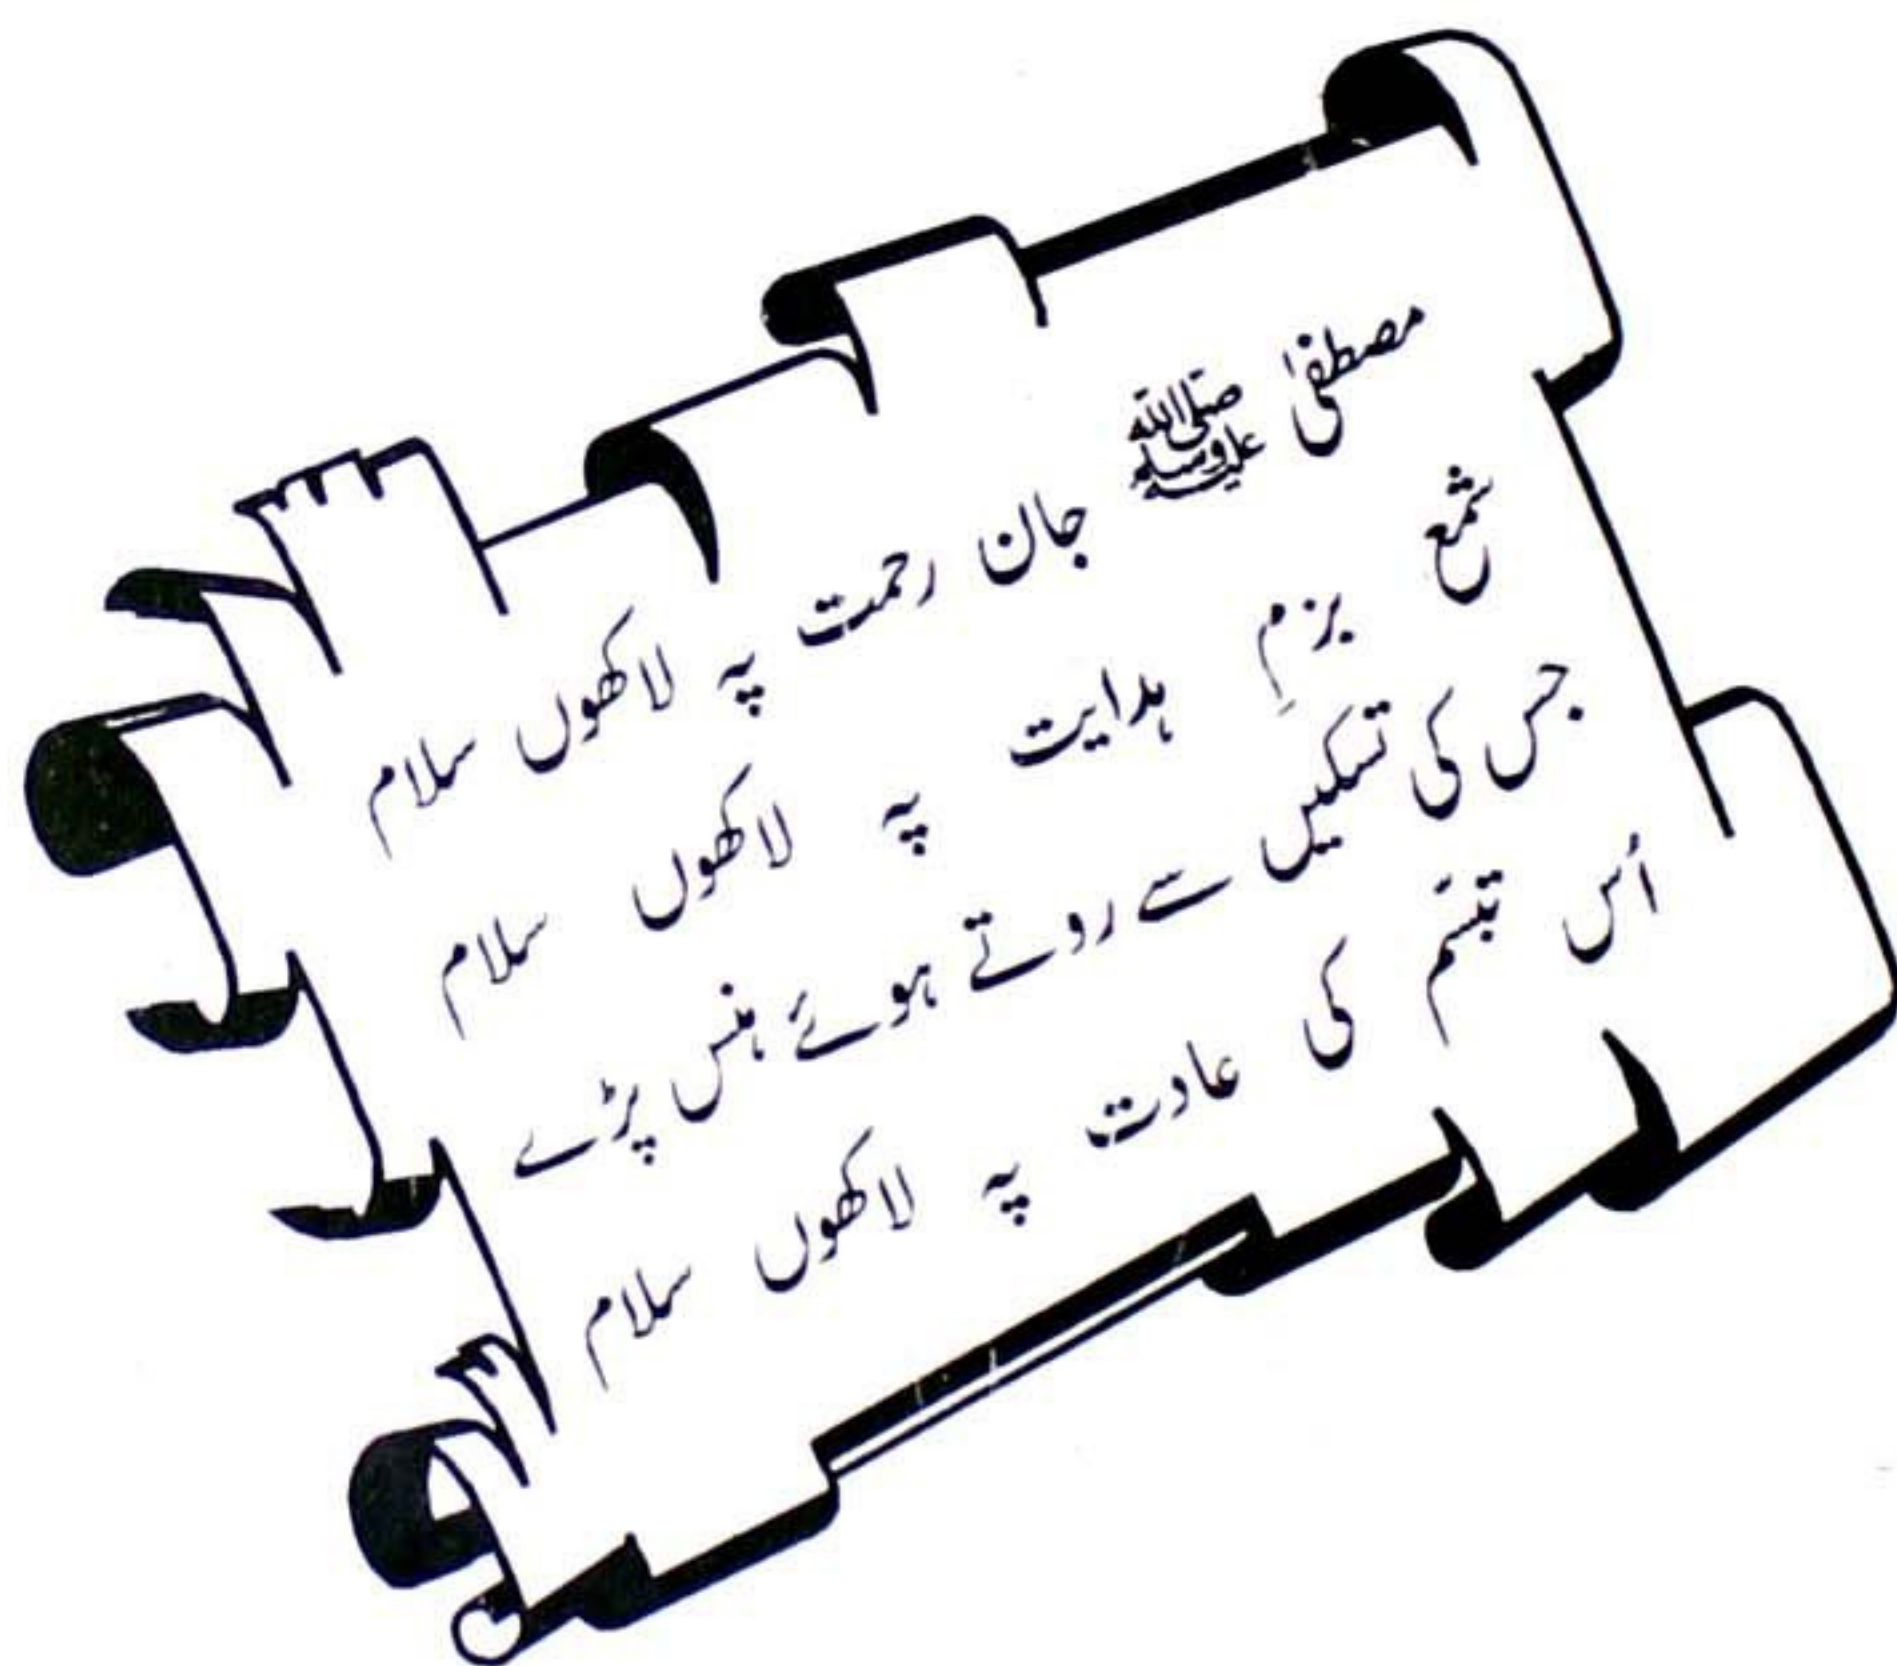 مصطفیٰ ﷺ جان رحمت پہ لاکھوں سلام
شمع بزمِ ہدایت پہ لاکھوں سلام
جس کی تسکیں سے روتے ہوئے ہنس پڑے
اُس تبسّم کی عادت پہ لاکھوں سلام